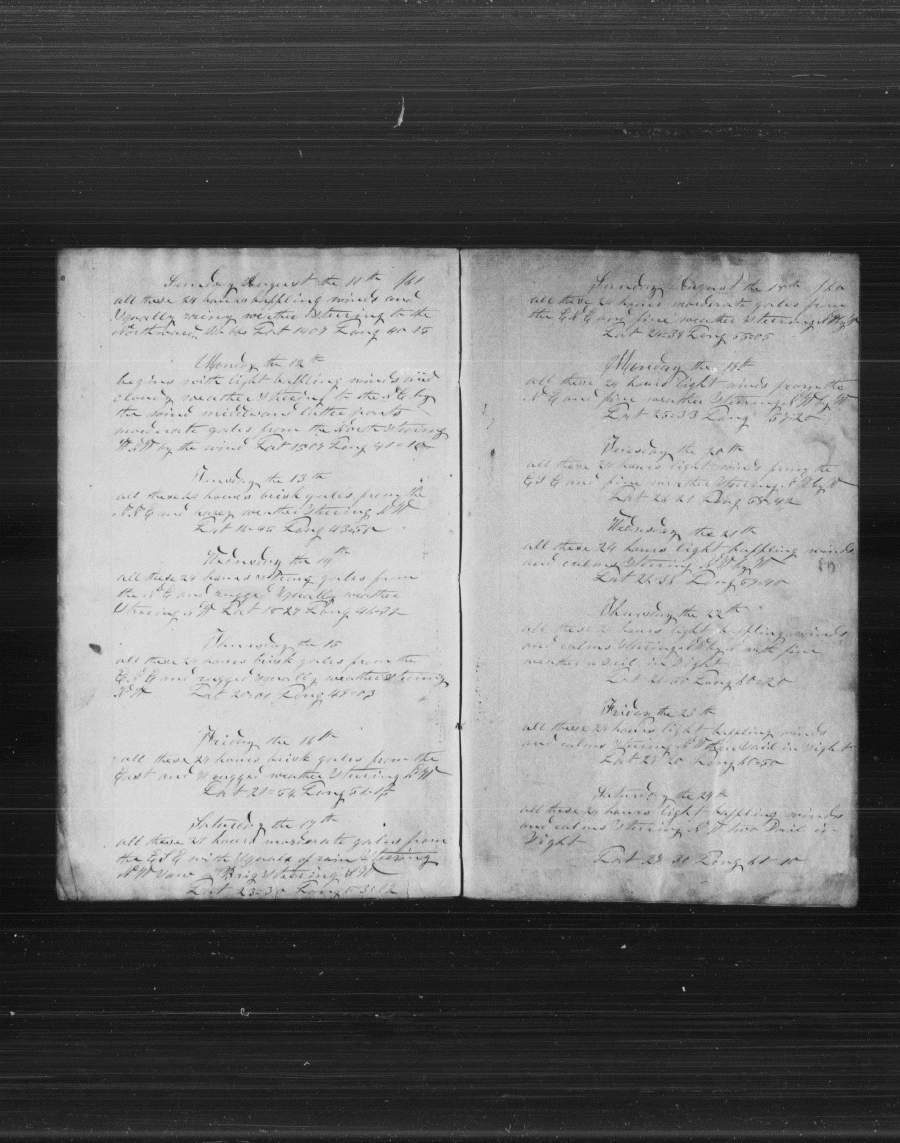 Sunday August the 11th /61
all these 24 hours baffling winds and
Squally weather Steering to the
Northward Lat 14 09 Long 40-15
Monday the 12th
begins with light baffling winds and
cloudy weather Steering to the N E by
the wind middle and latter parts
moderate gales from the North Steering
by the wind Lat 15 09 Long 41-10
Tuesday the 13th
all these 24 hours brisk gales from the
N E and weather Steering N W
Lat 16-45 Long 43-50
Wednesday the 14th
all these 24 hours strong gales from
the N E and rugged Squally weather
Steering N W Lat 18-27 Long 46-32
Thursday the 15
all these 24 hours brisk gales from the
E N E and rugged squally weather steering
N W Lat 20-01 Long 49-03
Friday the 16th
all these 24 hours brisk gales from the
East and rugged weather Steering N W
Lat 21-54 Long 51-15
Saturday the 17th
all these 24 hours moderate gales from
the E S E with Squalls of rain Steering
N W Saw a Brig Steering N W
Lat 23-30 Long
Sunday August the 18th
all these 24 hours moderate gales from
the E S E and fine weather Steering N W by W
Lat 24-39 Long 55-05
Monday the 19th
all these 24 hours light winds from the
N E and fine weather Steering N W by W
Lat 25-33 Long 57-20
Tuesday the 20th
all these 24 hours light winds from the
E S E and fine weather Steering N W by W
Lat 26 21 Long 58-42
Wednesday the 21th
all these 24 hours light baffling winds
and calms Steering N W by W
Lat 26-35 Long 59-40
Thursday the 22th
all these 24 hours light baffling winds
and calms Steering with fine
weather a Sail in Sight
Long 60-20
Friday the 23th
all these 24 hours light baffling winds
and calms Steering N W Sail in Sight
Long 60-50
Saturday the 24th
all these 24 hours light baffling winds
and calms Steering N W two Sail in
Sight
Lat 28-31 Long 61-10